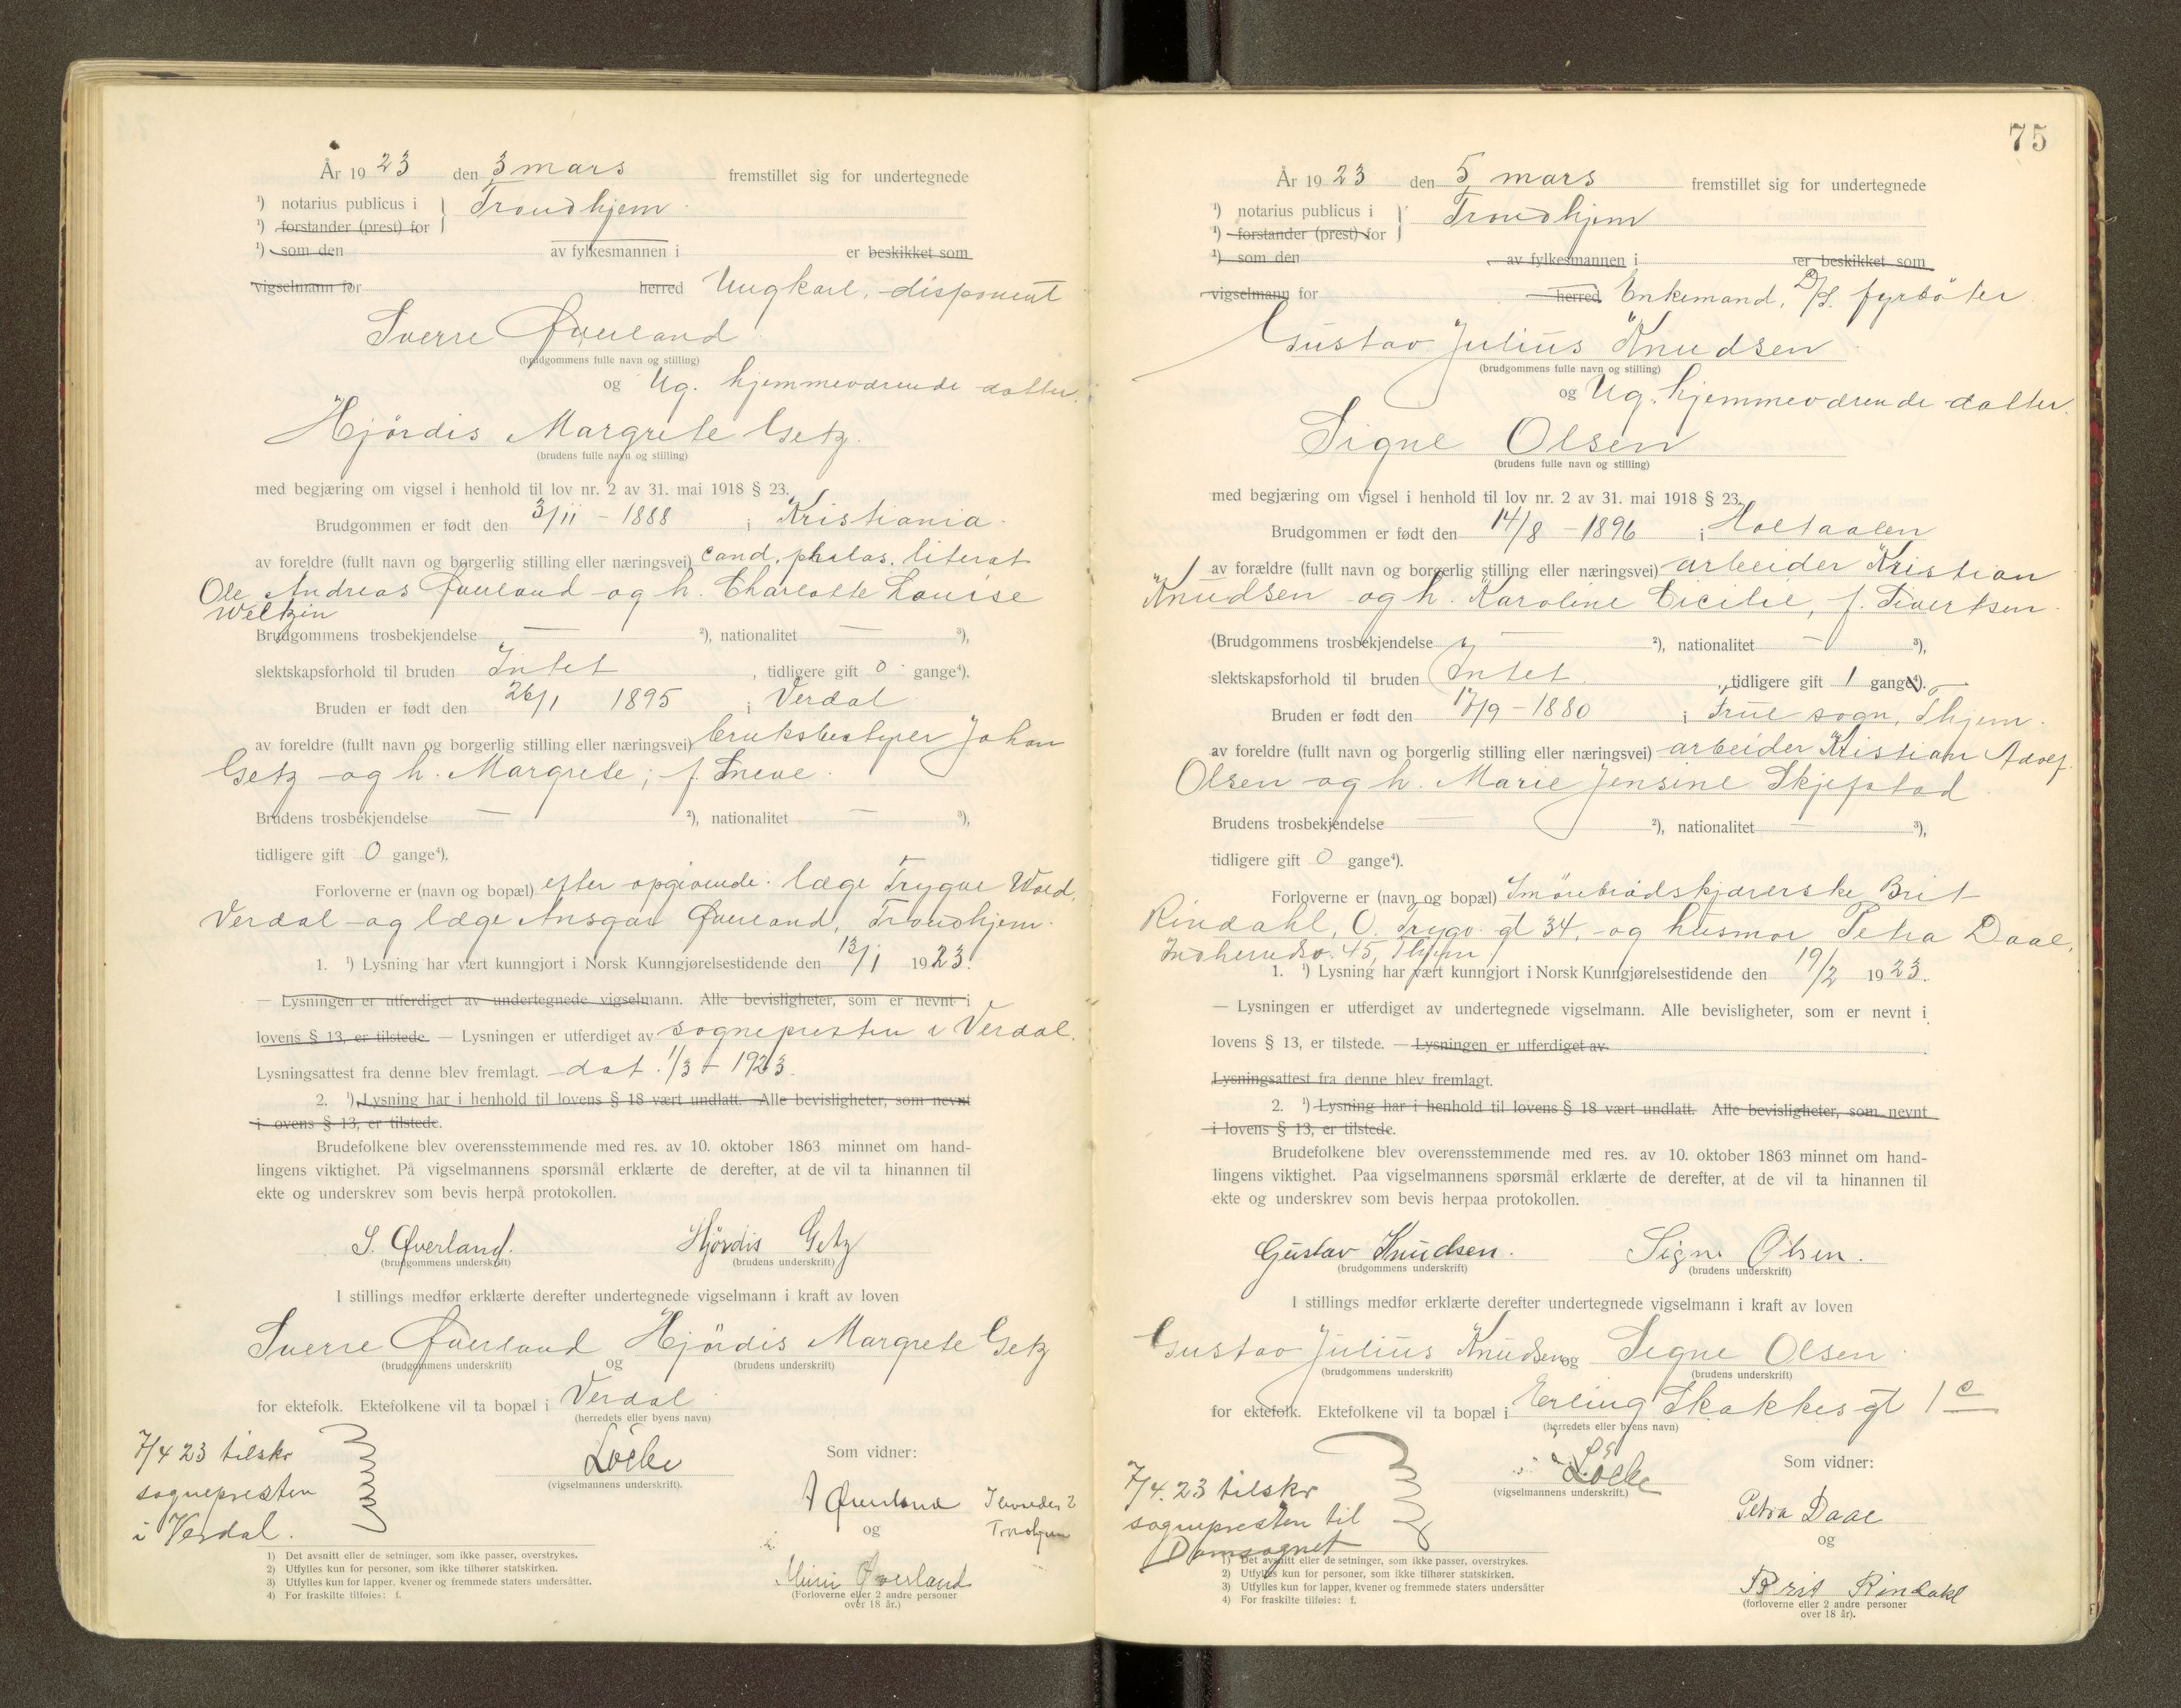 År 1923 den 3 mars fremstillet sig for undertegnede
¹) notarius publicus i Trondhjem
¹) forstander (prest) for
¹) som den av fylkesmannen i er beskikket som
vigselmann for herred Ungkarl, disponent
Sverre Øverland
(brudgommens fulle navn og stilling)
og Ug. hjemmeværende datter.
Hjördis Margrete Getz.
(brudens fulle navn og stilling)
med begjæring om vigsel i henhold til lov nr. 2 av 31. mai 1918 § 23.
Brudgommen er født den 3/11 - 1888 i Kristiania.
av foreldre (fullt navn og borgerlig stilling eller næringsvei) cand. philos. literat
Ole Andreas Øverland og h. Charlotte Louise
Weltzin
Brudgommens trosbekjendelse — ²), nationalitet — ³),
slektskapsforhold til bruden Intet, tidligere gift 0 gange⁴).
Bruden er født den 26/1 1895 i Verdal
av foreldre (fullt navn og borgerlig stilling eller næringsvei) bruksbestyrer Johan
Getz og h. Margrete, f. Sneve.
Brudens trosbekjendelse — ²), nationalitet — ³),
tidligere gift 0 gange⁴).
Forloverne er (navn og bopæl) efter opgivende: læge Trygve Wold,
Verdal og læge Ansgar Øverland, Trondhjem.
1. ¹) Lysning har vært kunngjort i Norsk Kunngjørelsestidende den 13/1 1923.
— Lysningen er utferdiget av undertegnede vigselmann. Alle bevisligheter, som er nevnt i
lovens § 13, er tilstede. — Lysningen er utferdiget av sognepresten i Verdal.
Lysningsattest fra denne blev fremlagt. dat. 1/3 - 1923.
2. ¹) Lysning har i henhold til lovens § 18 vært undlatt. Alle bevisligheter, som nevnt
i ovens § 13, er tilstede.
Brudefolkene blev overensstemmende med res. av 10. oktober 1863 minnet om hand-
lingens viktighet. På vigselmannens spørsmål erklærte de derefter, at de vil ta hinannen til
ekte og underskrev som bevis herpå protokollen.
S. Øverland. Hjördis Getz
(brudgommens underskrift) (brudens underskrift)
I stillings medfør erklærte derefter undertegnede vigselmann i kraft av loven
Sverre Øverland og Hjördis Margrete Getz
(brudgommens underskrift) (brudens underskrift)
for ektefolk. Ektefolkene vil ta bopæl i Verdal
(herredets eller byens navn)
7/4 23 tilskr
sognepresten
i Verdal.
(vigselmannens underskrift).
Som vidner:
A Øverland
Trondhjem
og
Øverland
(Forloverne eller 2 andre personer
over 18 år.)
1) Det avsnitt eller de setninger, som ikke passer, overstrykes.
2) Utfylles kun for personer, som ikke tilhører statskirken.
3) Utfylles kun for lapper, kvener og fremmede staters undersåtter.
4) For fraskilte tilføies: f.
75
År 1923 den 5 mars fremstillet sig for undertegnede
¹) notarius publicus i Trondhjem
¹) forstander (prest) for
¹) som den av fylkesmannen i er beskikket som
vigselmann for herred Enkemand, D/S. fyrbøter
Gustav Julius Knudsen
(brudgommens fulle navn og stilling)
og Ug. hjemmeværende datter.
Signe Olsen
(brudens fulle navn og stilling)
med begjæring om vigsel i henhold til lov nr. 2 av 31. mai 1918 § 23.
Brudgommen er født den 14/8 - 1896 i Holtaalen
av forældre (fullt navn og borgerlig stilling eller næringsvei) arbeider Kristian
Knudsen og h. Karoline Cicilie, f. Sivertsen.
(Brudgommens trosbekjendelse — ²), nationalitet — ³),
slektskapsforhold til bruden Intet, tidligere gift 1 gang⁴).
Bruden er født den 17/9 - 1880 i Frue sogn, Thjem.
av foreldre (fullt navn og borgerlig stilling eller næringsvei) arbeider Kristian Adolf
Olsen og h. Marie Jensine Skjefstad
Brudens trosbekjendelse — ²), nationalitet — ³),
tidligere gift 0 gange⁴).
Forloverne er (navn og bopæl) Smørebrødskjærerske Brit
Rindahl, O. Trygv. gt 34, og husmor Petra Daae,
Indherredsv. 45, Thjem
1. ¹) Lysning har vært kunngjort i Norsk Kunngjørelsestidende den 19/2 1923.
— Lysningen er utferdiget av undertegnede vigselmann. Alle bevisligheter, som er nevnt i
lovens § 13, er tilstede. — Lysningen er utferdiget av
Lysningsattest fra denne blev fremlagt.
2. ¹) Lysning har i henhold til lovens § 18 vært undlatt. Alle bevisligheter, som nevnt
i lovens § 13, er tilstede.
Brudefolkene blev overensstemmende med res. av 10. oktober 1863 minnet om hand-
lingens viktighet. Paa vigselmannens spørsmål erklærte de derefter, at de vil ta hinannen til
ekte og underskrev som bevis herpaa protokollen.
Gustav Knudsen. Signe Olsen.
(brudgommens underskrift) (brudens underskrift)
I stillings medfør erklærte derefter undertegnede vigselmann i kraft av loven
Gustav Julius Knudsen og Signe Olsen
(brudgommens underskrift) (brudens underskrift)
for ektefolk. Ektefolkene vil ta bopæl i Erling Skakkes gt 1c
(herredets eller byens navn)
7/4.23 tilskr
sognepresten til
Domsognet
(vigselmannens underskrift.)
Som vidner:
Petra Daae
og
Brit Rindahl
(forloverne eller 2 andre personer
over 18 år).
1) Det avsnitt eller de setninger, som ikke passer, overstrykes.
2) Utfylles kun for personer, som ikke tilhører statskirken.
3) Utfylles kun for lapper, kvener og fremmede staters undersåtter
4) For fraskilte tilføies: f.